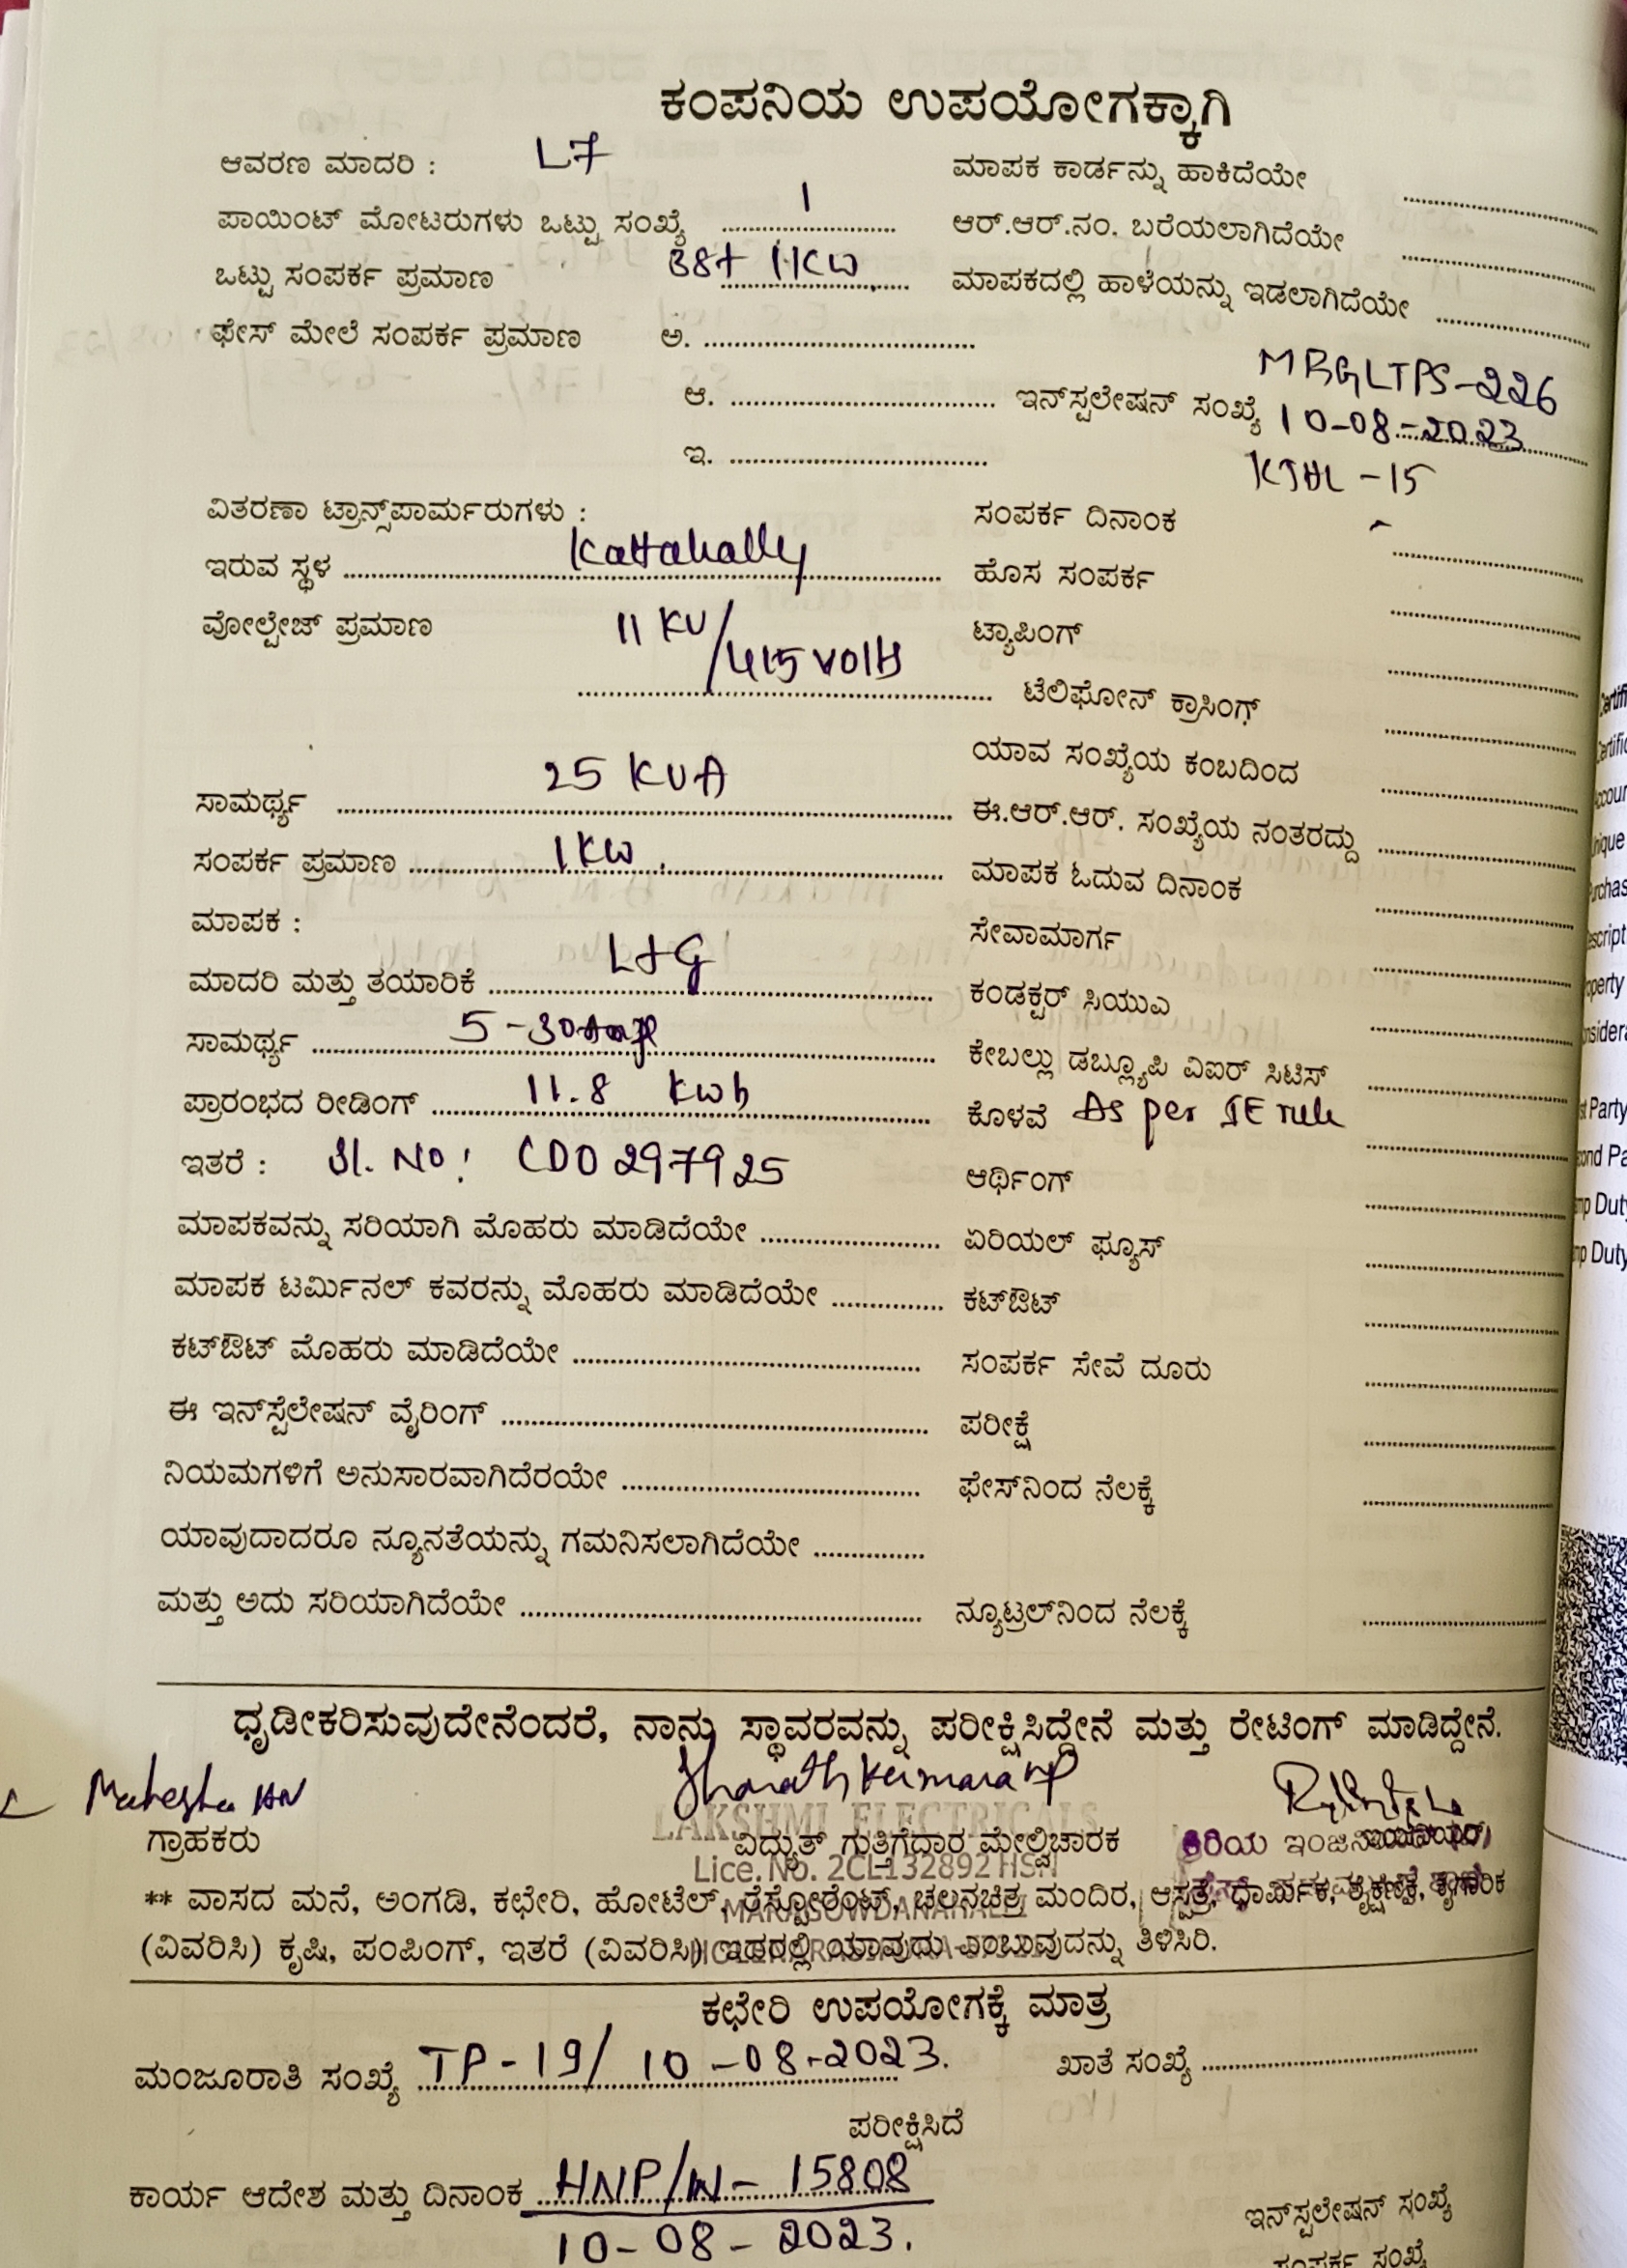 ಕಂಪನಿಯ ಉಪಯೋಗಕ್ಕಾಗಿ
ಆವರಣ ಮಾದರಿ : L7 ಮಾಪಕ ಕಾರ್ಡನ್ನು ಹಾಕಿದೆಯೇ
ಪಾಯಿಂಟ್ ಮೋಟರುಗಳು ಒಟ್ಟು ಸಂಖ್ಯೆ 1 ಆರ್.ಆರ್.ನಂ. ಬರೆಯಲಾಗಿದೆಯೇ
ಒಟ್ಟು ಸಂಪರ್ಕ ಪ್ರಮಾಣ ಮಾಪಕದಲ್ಲಿ ಹಾಳೆಯನ್ನು ಇಡಲಾಗಿದೆಯೇ
ಫೇಸ್ ಮೇಲೆ ಸಂಪರ್ಕ ಪ್ರಮಾಣ ಅ.
MRGLTPS-226
ಆ. ಇನ್‌ಸ್ಪಲೇಷನ್ ಸಂಖ್ಯೆ 10-08-2023
ಇ. KJHL -15
ವಿತರಣಾ ಟ್ರಾನ್ಸ್‌ಪಾರ್ಮರುಗಳು : ಸಂಪರ್ಕ ದಿನಾಂಕ
ಇರುವ ಸ್ಥಳ Kattahally ಹೊಸ ಸಂಪರ್ಕ
ವೋಲ್ಟೇಜ್ ಪ್ರಮಾಣ 11 KV/415 Volts ಟ್ಯಾಪಿಂಗ್
ಟೆಲಿಫೋನ್ ಕ್ರಾಸಿಂಗ್
ಯಾವ ಸಂಖ್ಯೆಯ ಕಂಬದಿಂದ
ಸಾಮರ್ಥ್ಯ 25 KVA ಈ.ಆರ್.ಆರ್. ಸಂಖ್ಯೆಯ ನಂತರದ್ದು
ಸಂಪರ್ಕ ಪ್ರಮಾಣ 1KW. ಮಾಪಕ ಓದುವ ದಿನಾಂಕ
ಮಾಪಕ : ಸೇವಾಮಾರ್ಗ
ಮಾದರಿ ಮತ್ತು ತಯಾರಿಕೆ L+G ಕಂಡಕ್ಟರ್ ಸಿಯುಎ
ಸಾಮರ್ಥ್ಯ 5-30 ಕೇಬಲ್ಲು ಡಬ್ಲ್ಯೂಪಿ ವಿಐರ್ ಸಿಟಿಸ್
ಪ್ರಾರಂಭದ ರೀಡಿಂಗ್ 11.8 Kwh ಕೊಳವೆ As per IE rule
ಇತರೆ : Sl. No: CD0297925 ಆರ್ಥಿಂಗ್
ಮಾಪಕವನ್ನು ಸರಿಯಾಗಿ ಮೊಹರು ಮಾಡಿದೆಯೇ ಏರಿಯಲ್ ಫ್ಯೂಸ್
ಮಾಪಕ ಟರ್ಮಿನಲ್ ಕವರನ್ನು ಮೊಹರು ಮಾಡಿದೆಯೇ ಕಟ್‌ಔಟ್
ಕಟ್‌ಔಟ್ ಮೊಹರು ಮಾಡಿದೆಯೇ ಸಂಪರ್ಕ ಸೇವೆ ದೂರು
ಈ ಇನ್‌ಸ್ಟೆಲೇಷನ್ ವೈರಿಂಗ್ ಪರೀಕ್ಷೆ
ನಿಯಮಗಳಿಗೆ ಅನುಸಾರವಾಗಿದೆರಯೇ ಫೇಸ್‌ನಿಂದ ನೆಲಕ್ಕೆ
ಯಾವುದಾದರೂ ನ್ಯೂನತೆಯನ್ನು ಗಮನಿಸಲಾಗಿದೆಯೇ
ಮತ್ತು ಅದು ಸರಿಯಾಗಿದೆಯೇ ನ್ಯೂಟ್ರಲ್‌ನಿಂದ ನೆಲಕ್ಕೆ
ಧೃಡೀಕರಿಸುವುದೇನೆಂದರೆ, ನಾನು ಸ್ಥಾವರವನ್ನು ಪರೀಕ್ಷಿಸಿದ್ದೇನೆ ಮತ್ತು ರೇಟಿಂಗ್ ಮಾಡಿದ್ದೇನೆ.
Mahesha HN
LAKSHMI ELECTRICALS
ಗ್ರಾಹಕರು ವಿದ್ಯುತ್ ಗುತ್ತಿಗೆದಾರ ಮೇಲ್ವಿಚಾರಕ ಕಿರಿಯ
Lice. No. 2CL132892 HSN
** ವಾಸದ ಮನೆ, ಅಂಗಡಿ, ಕಛೇರಿ, ಹೋಟೆಲ್, ರೆಸ್ಟೋರೆಂಟ್, ಚಲನಚಿತ್ರ ಮಂದಿರ, ಆಸ್ಪತ್ರೆ, ಧಾರ್ಮಿಕ, ಶೈಕ್ಷಣಿಕ, ಕೈಗಾರಿಕ
(ವಿವರಿಸಿ) ಕೃಷಿ, ಪಂಪಿಂಗ್, ಇತರೆ (ವಿವರಿಸಿ) ಇದರಲ್ಲಿ ಯಾವುದು ಎಂಬುವುದನ್ನು ತಿಳಿಸಿರಿ.
ಕಛೇರಿ ಉಪಯೋಗಕ್ಕೆ ಮಾತ್ರ
ಮಂಜೂರಾತಿ ಸಂಖ್ಯೆ TP-19/ 10-08-2023. ಖಾತೆ ಸಂಖ್ಯೆ
ಪರೀಕ್ಷಿಸಿದೆ
ಕಾರ್ಯ ಆದೇಶ ಮತ್ತು ದಿನಾಂಕ HNP/W- 15808
ಇನ್‌ಸ್ಪಲೇಷನ್ ಸಂಖ್ಯೆ
10-08-2023.